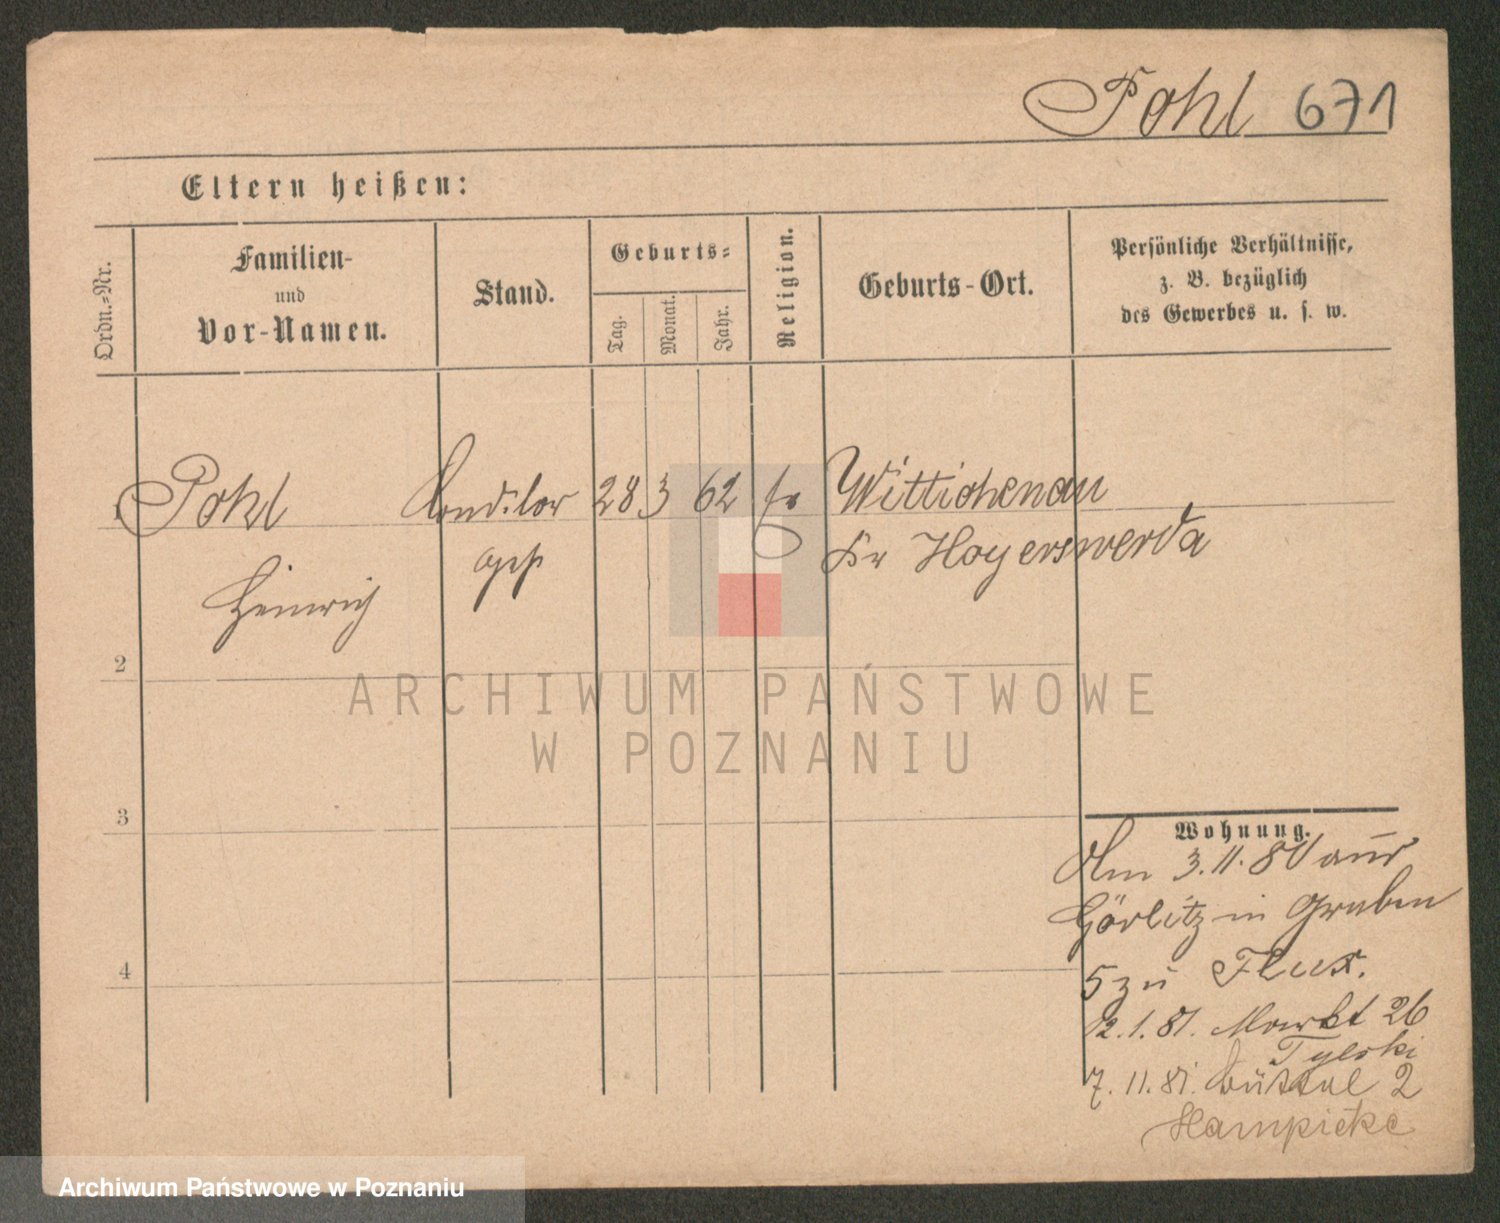 Pohl 671
Eltern heißen:
Ordn.=Nr.
Familien-
und
Vor-Namen.
Stand.
Geburts=
Tag.
Monat.
Jahr.
Religion.
Geburts-Ort.
Persönliche Verhältnisse,
z. B. bezüglich
des Gewerbes u. s. w.
1 Pohl Conditor 28 3 62 Wittichenau
Kr Hoyerswerda
Heinrich
2
ARCHIWUM PAŃSTWOWE
W POZNANIU
3
Wohnung.
Am 3.11.80 aus
Görlitz in Graben
4
5 zu Flux.
12.1.81. Markt 26
Tylski
7.11.81. Büttel 2
Hampicke
Archiwum Państwowe w Poznaniu